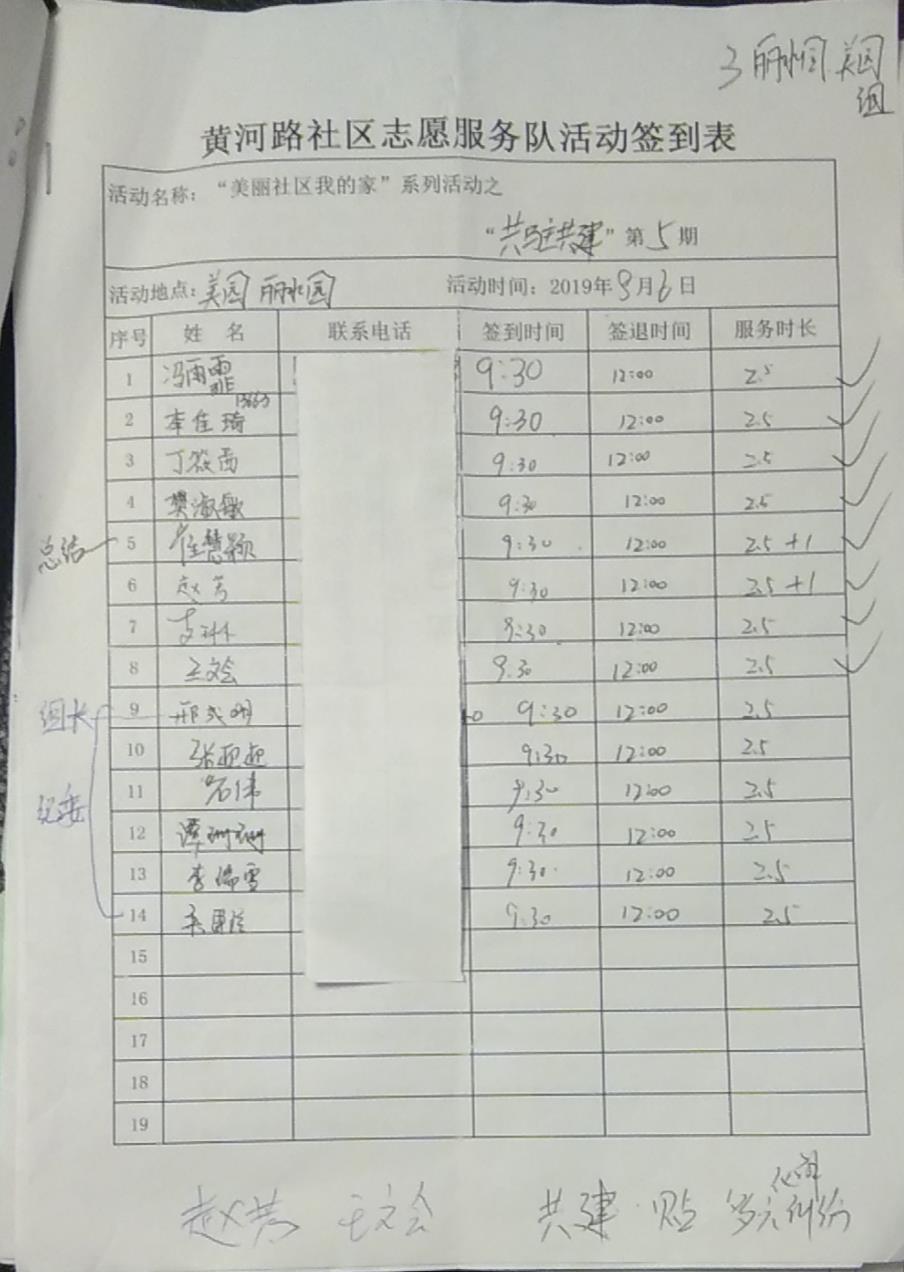 3 丽水园 美园
组
黄河路社区志愿服务队活动签到表
活动名称：“美丽社区我的家”系列活动之
“共驻共建”第5期
活动地点：美园 丽水园 活动时间：2019年9月6日
序号 姓 名 联系电话 签到时间 签退时间 服务时长
1 冯雨霏 9:30 12:00 2.5
13663
2 李佳琦 9:30 12:00 2.5
3 丁筱茜 9:30 12:00 2.5
4 樊淑敏 9:30 12:00 2.5
总结 5 崔慧颖 9:30 12:00 2.5 +1
6 赵芳 9:30 12:00 2.5 +1
7 支琳 9:30 12:00 2.5
8 王文会 9:30 12:00 2.5
组长 9 邢 明 9:30 12:00 2.5
10 张亚迎 9:30 12:00 2.5
纪委 11 石伟 9:30 12:00 2.5
12 谭珊珊 9:30 12:00 2.5
13 李瑞雪 9:30 12:00 2.5
14 9:30 12:00 2.5
15
16
17
18
19
化解
赵芳 王文会 共建 贴 多元纠纷